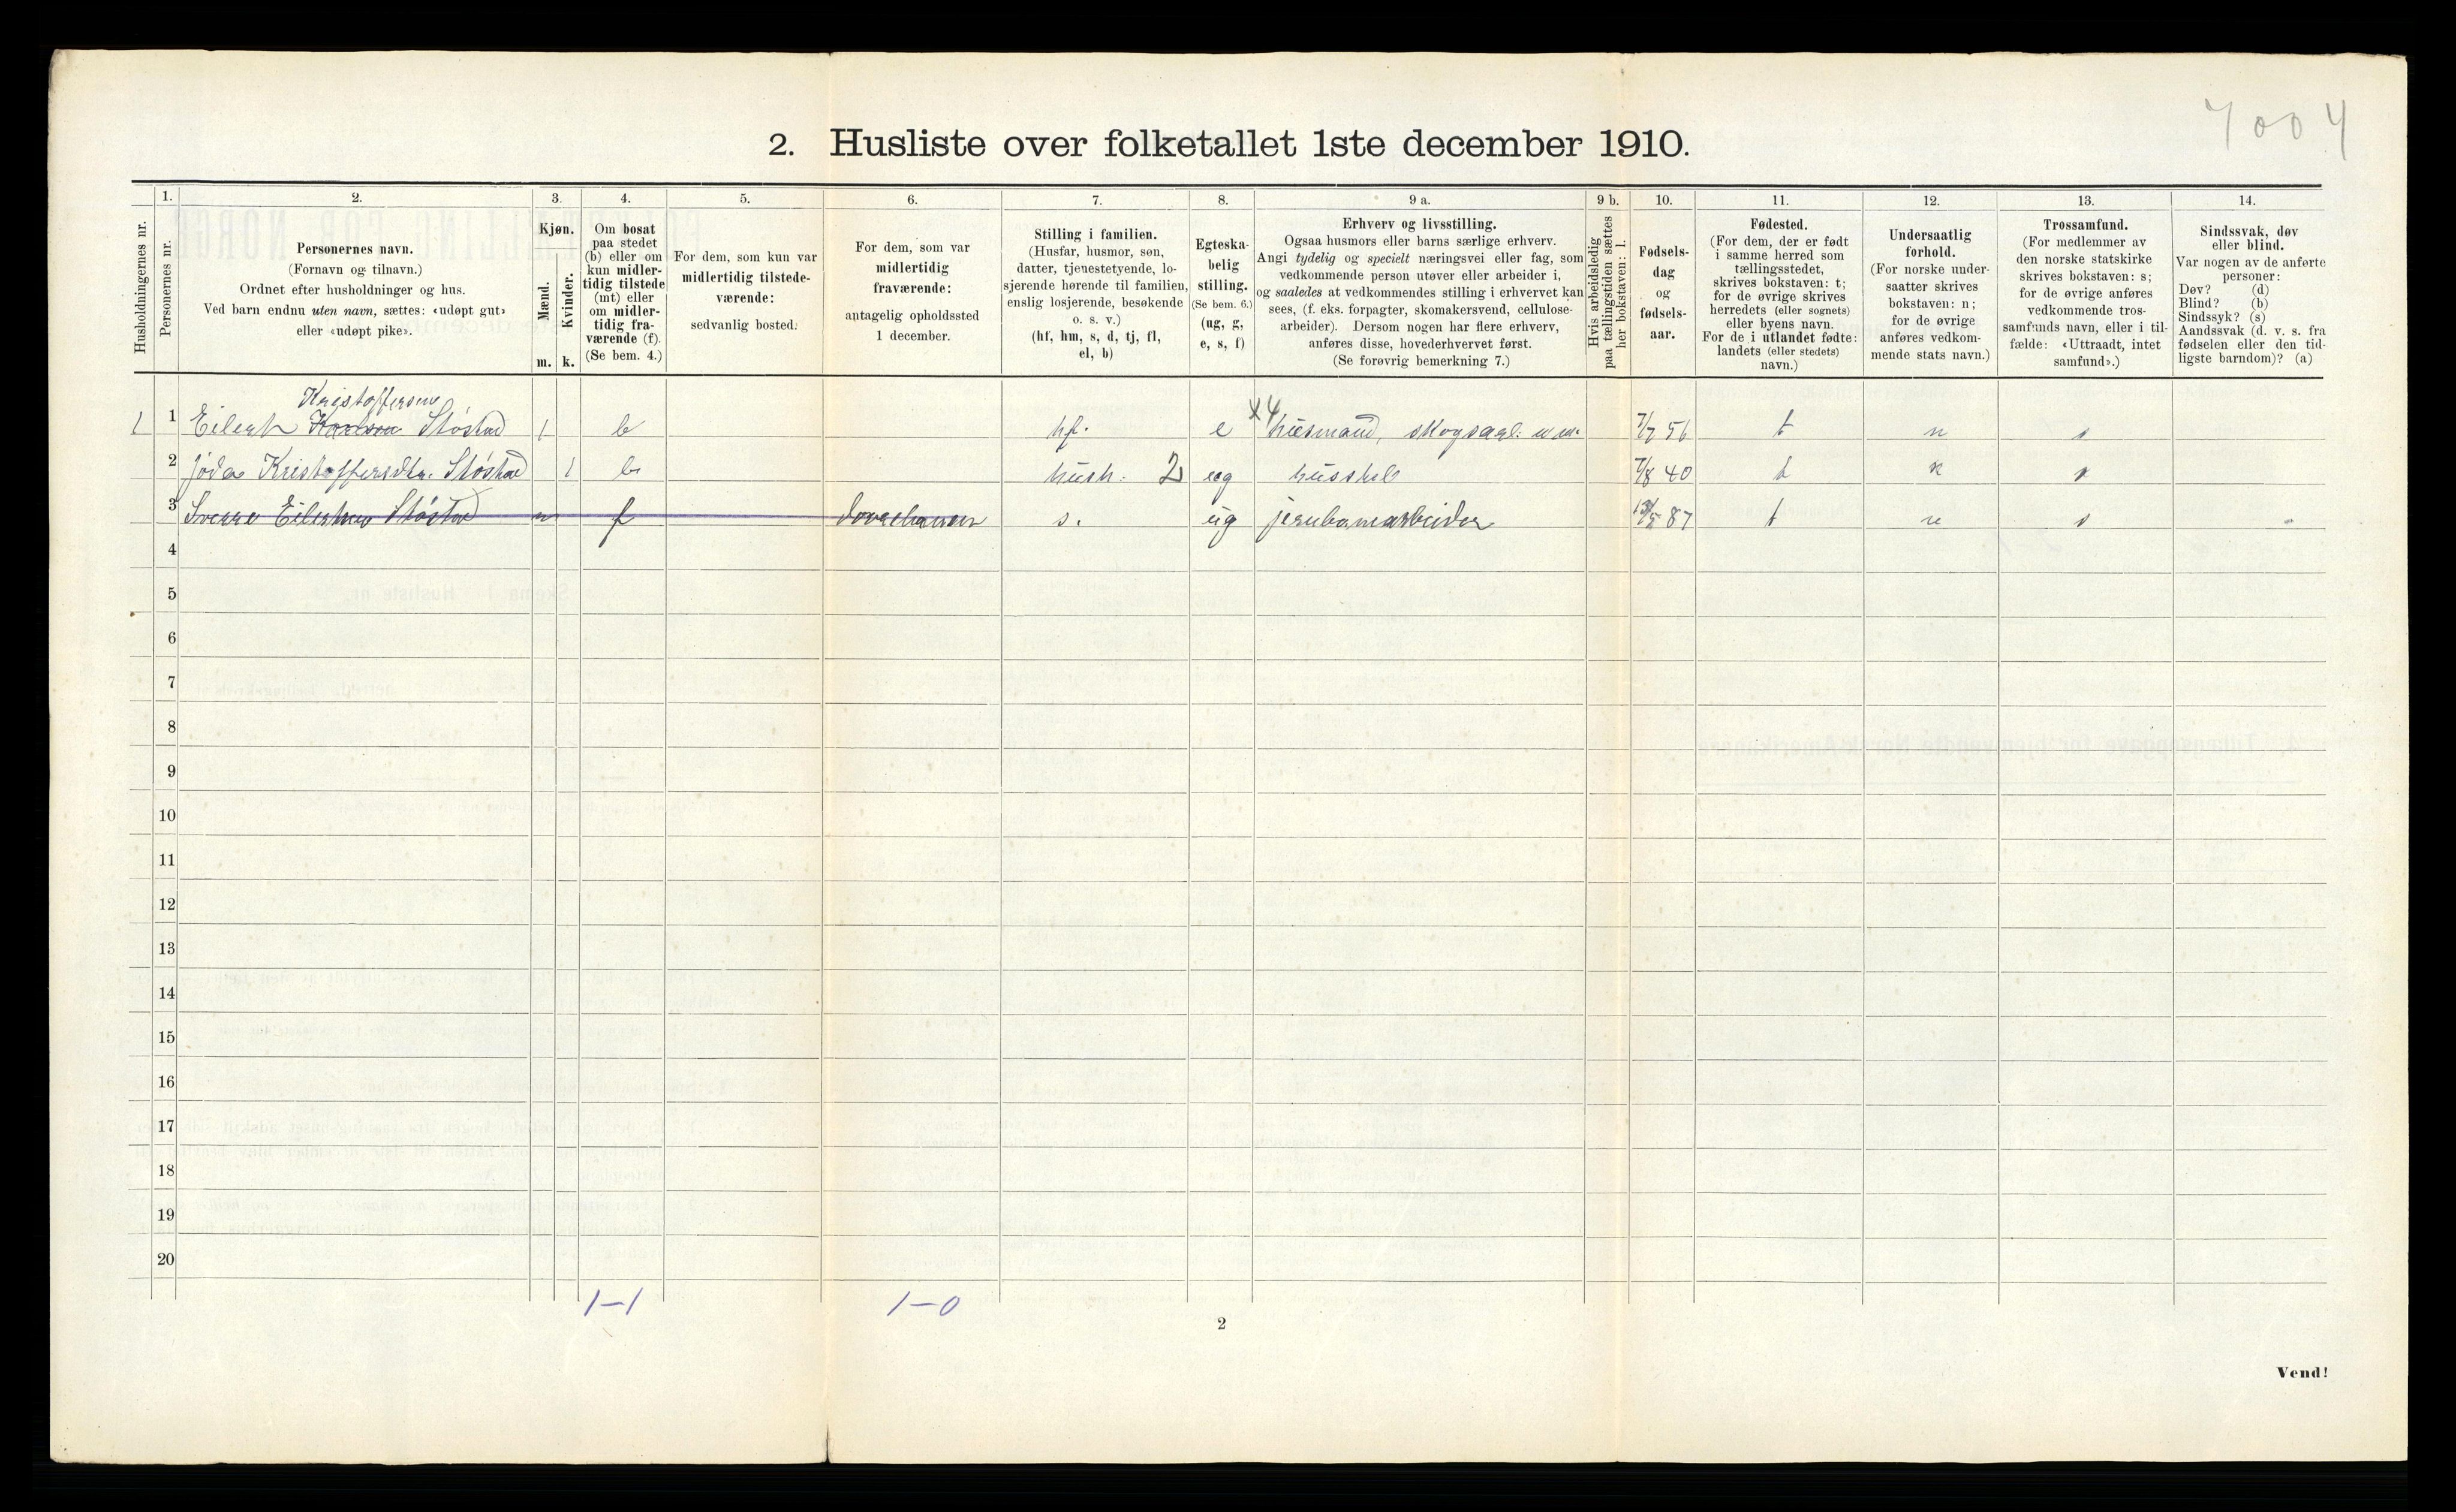 7004
2. Husliste over folketallet 1ste december 1910.
Husholdningernes nr.
1.
Personernes nr.
2.
Personernes navn.
(Fornavn og tilnavn.)
Ordnet efter husholdninger og hus.
Ved barn endnu uten navn, sættes: «udøpt gut»
eller «udøpt pike».
3.
Kjøn.
Mænd.
m.
Kvinder.
k.
4.
Om bosat
paa stedet
(b) eller om
kun midler-
tidig tilstede
(mt) eller
om midler-
tidig fra-
værende (f).
(Se bem. 4.)
5.
For dem, som kun var
midlertidig tilstede-
værende:
sedvanlig bosted.
6.
For dem, som var
midlertidig
fraværende:
antagelig opholdssted
1 december.
7.
Stilling i familien.
(Husfar, husmor, søn,
datter, tjenestetyende, lo-
sjerende hørende til familien,
enslig losjerende, besøkende
o. s. v.)
(hf, hm, s, d, tj, fl,
el, b)
8.
Egteska-
belig
stilling.
(Se bem. 6.)
(ug, g,
e, s, f)
9 a.
Erhverv og livsstilling.
Ogsaa husmors eller barns særlige erhverv.
Angi tydelig og specielt næringsvei eller fag, som
vedkommende person utøver eller arbeider i,
og saaledes at vedkommendes stilling i erhvervet kan
sees, (f. eks. forpagter, skomakersvend, cellulose-
arbeider). Dersom nogen har flere erhverv,
anføres disse, hovederhvervet først.
(Se forøvrig bemerkning 7.)
9 b.
Hvis arbeidsledig
paa tællingstiden sættes
her bokstaven: l.
10.
Fødsels-
dag
og
fødsels-
aar.
11.
Fødested.
(For dem, der er født
i samme herred som
tællingsstedet,
skrives bokstaven: t;
for de øvrige skrives
herredets (eller sognets)
eller byens navn.
For de i utlandet fødte:
landets (eller stedets)
navn.)
12.
Undersaatlig
forhold.
(For norske under-
saatter skrives
bokstaven: n;
for de øvrige
anføres vedkom-
mende stats navn.)
13.
Trossamfund.
(For medlemmer av
den norske statskirke
skrives bokstaven: s;
for de øvrige anføres
vedkommende tros-
samfunds navn, eller i til-
fælde: «Uttraadt, intet
samfund».)
14.
Sindssvak, døv
eller blind.
Var nogen av de anførte
personer:
Døv? (d)
Blind? (b)
Sindssyk? (s)
Aandssvak (d. v. s. fra
fødselen eller den tid-
ligste barndom)? (a)
Kristoffersen
1 1 Eilerh Støstad 1 b hf. e x4 husmand, skogsarb. m m. 7/7 56 t n s
2 Jøda Kristoffersdtr. Støstad 1 b hush. 2 ug husstel 7/8 40 t n s
3 Sverre Eilertsen Støstad m f Dovrebanen s. ug jernbanearbeider 13/5 87 t n s
4
5
6
7
8
9
10
11
12
13
14
15
16
17
18
19
20
1-1 1-0
2
Vend!